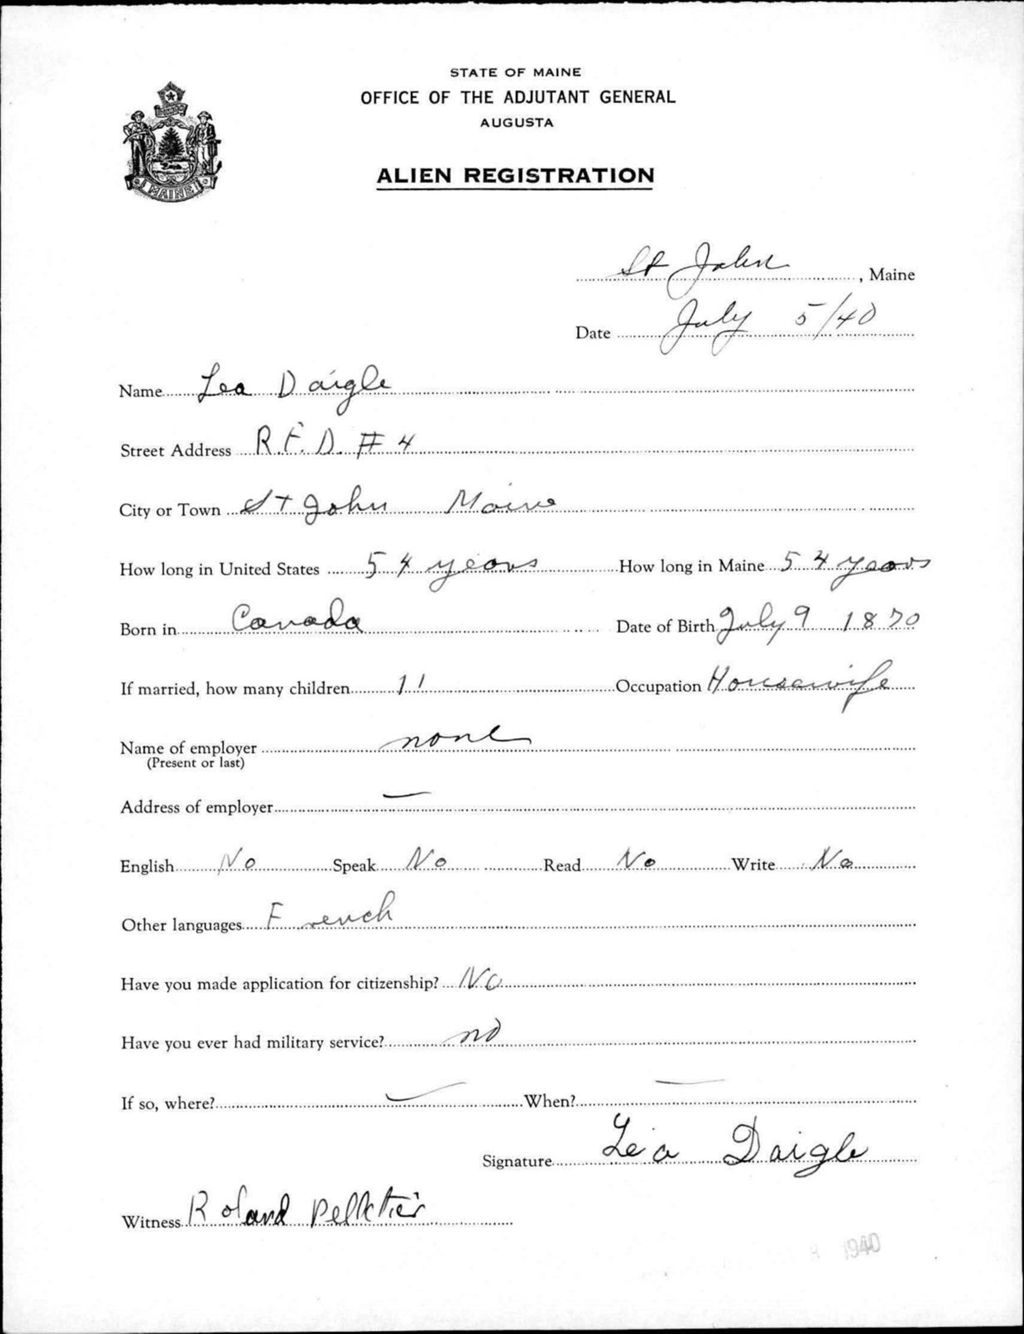 STATE OF MAINE
OFFICE OF THE ADJUTANT GENERAL
AUGUSTA
ALIEN REGISTRATION
MAINE
St John, Maine
Date July 5/40
Name Lea Daigle
Street Address R.F.D. # 4
City or Town St John Maine
How long in United States 54 years How long in Maine 54 years
Born in Canada Date of Birth July 9 1870
If married, how many children 11 Occupation Housewife
Name of employer none
(Present or last)
Address of employer —
English No Speak No Read No Write No
Other languages French
Have you made application for citizenship? No
Have you ever had military service? no
If so, where? — When? —
Signature Léa Daigle
Witness Roland Pelletier
8 1940